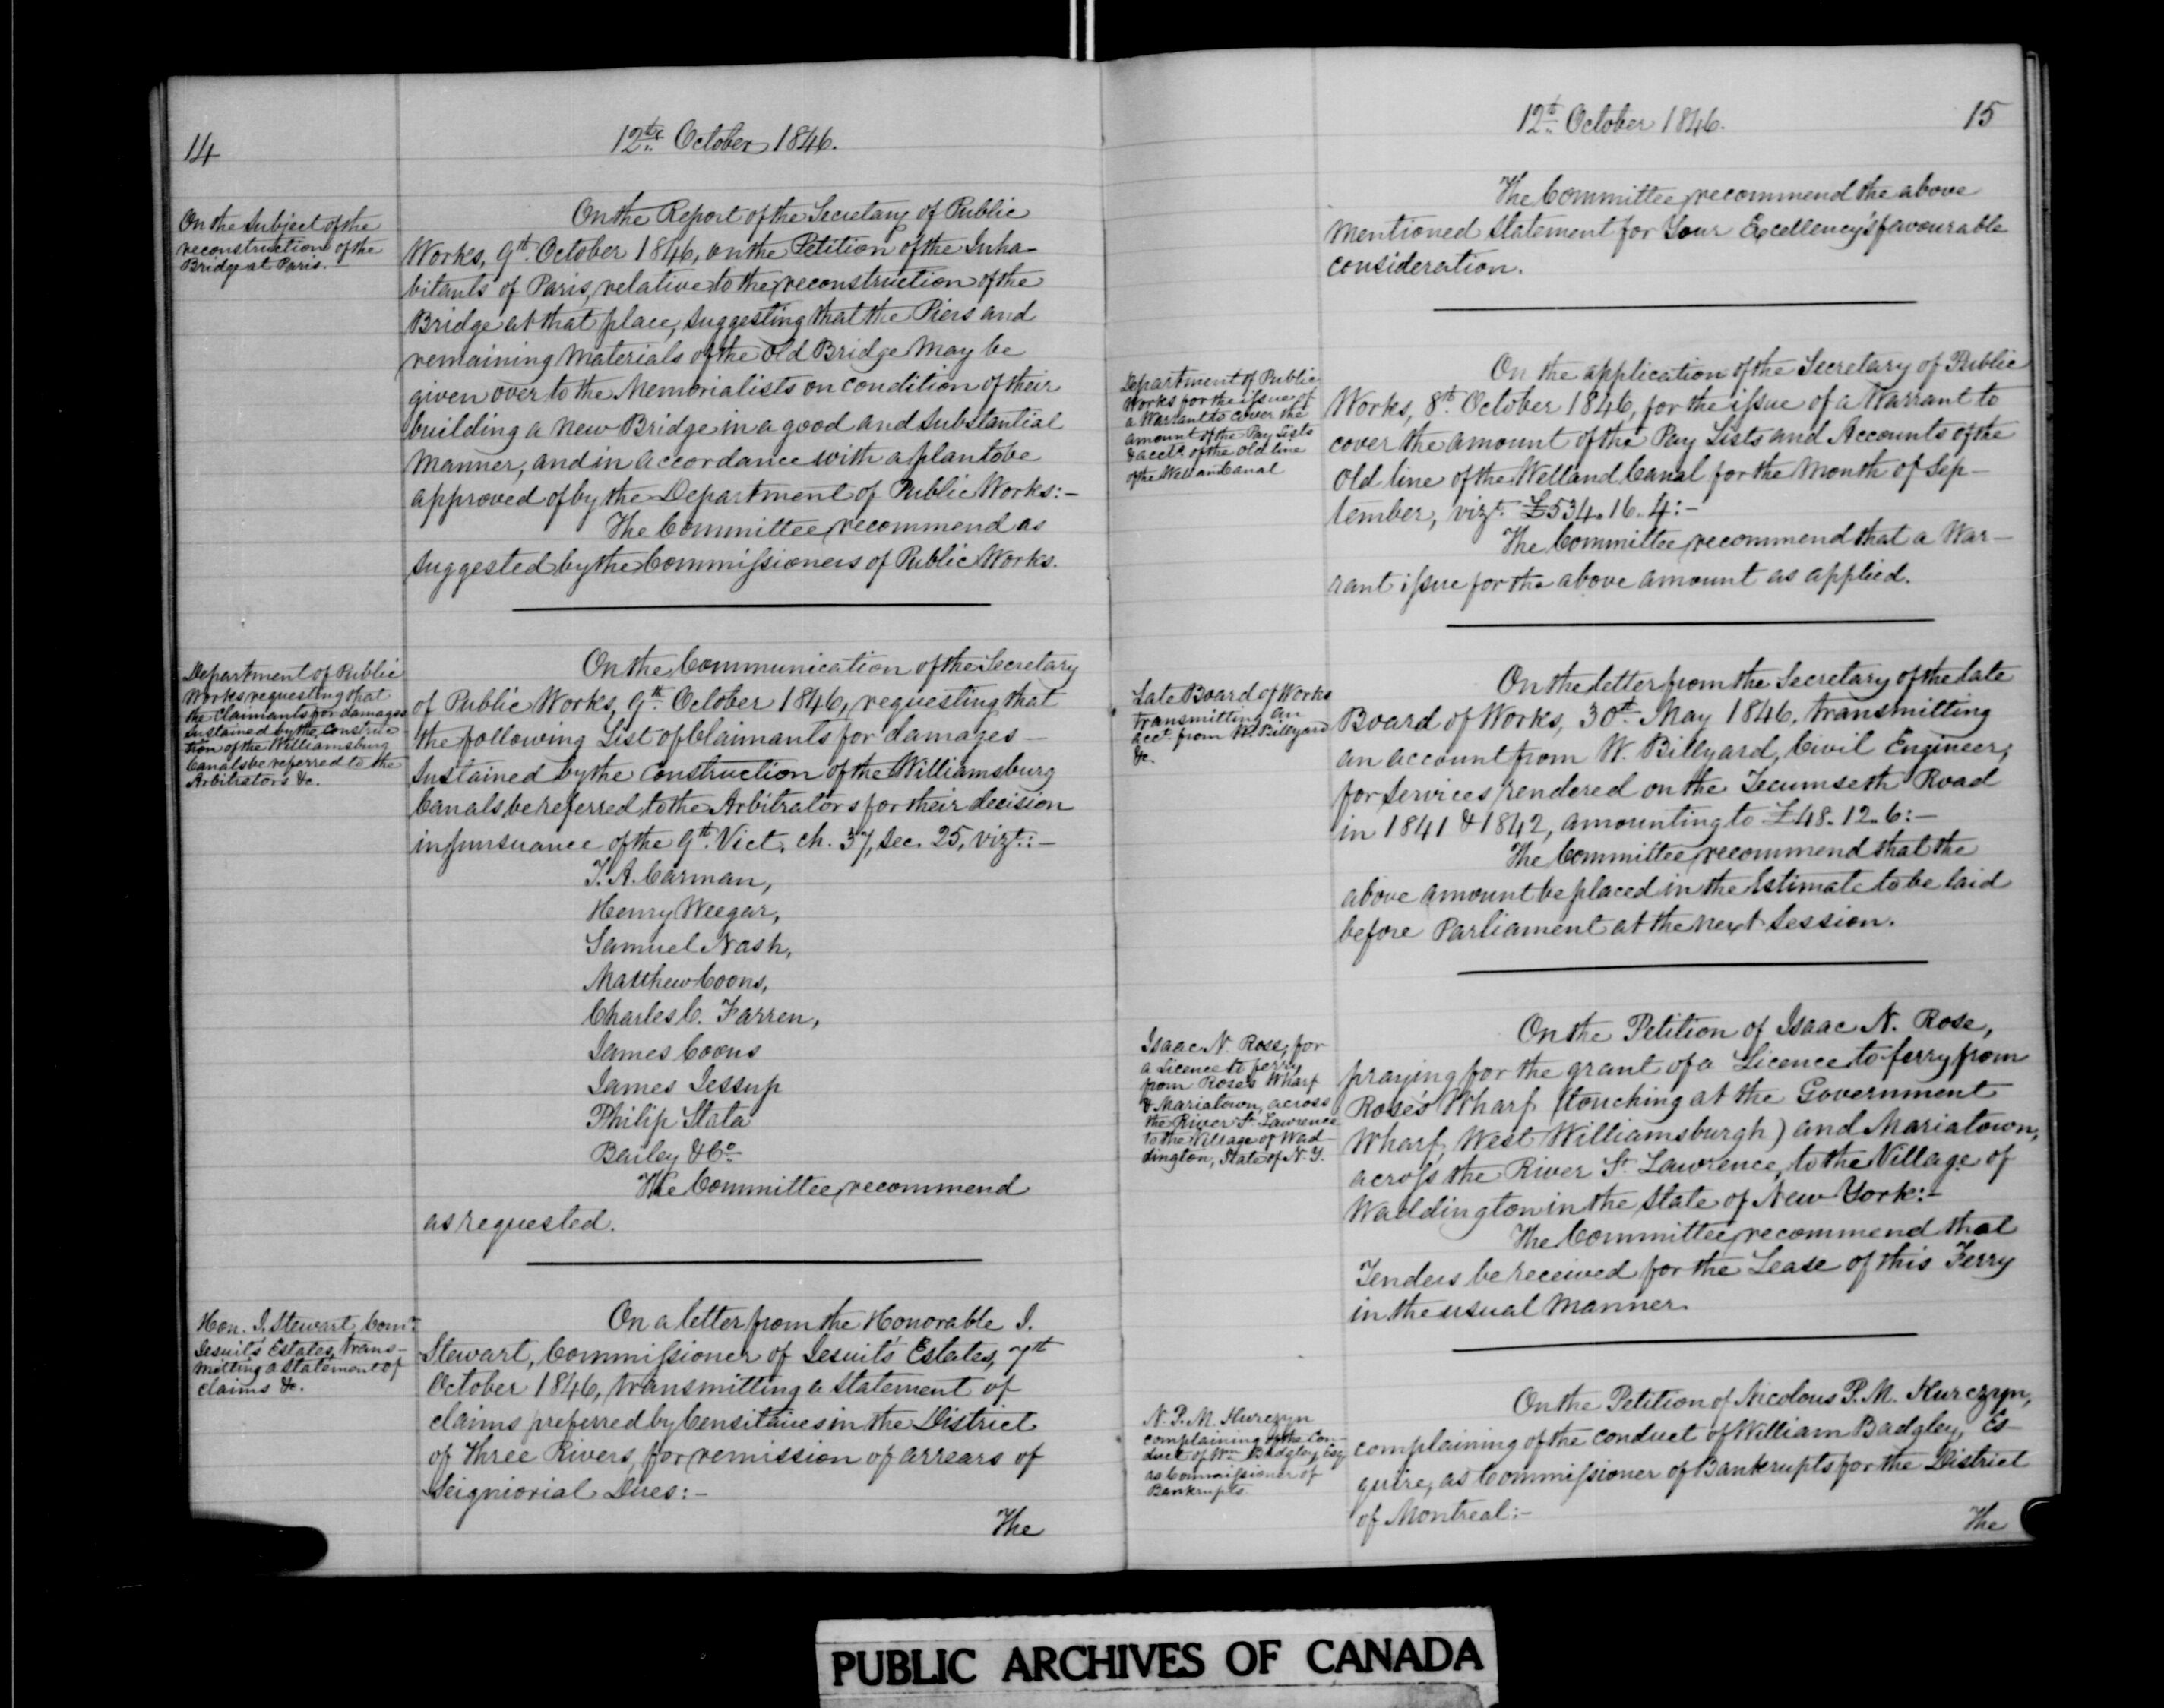 14
12th October 1846.
On the Subject of the
reconstruction of the
Bridge at Paris.
On the Report of the Secretary of Public
Works, 9th October 1846, on the Petition of the Inha-
bitants of Paris, relative to the reconstruction of the
Bridge at that place, suggesting that the Piers and
remaining Materials of the old Bridge may be
given over to the Memorialists on condition of their
building a new Bridge in a good and substantial
manner, and in accordance with a plan to be
approved of by the Department of Public Works:-
The Committee recommend as
suggested by the Commissioners of Public Works.
Department of Public
Works requesting that
the Claimants for damages
sustained by the Construc
tion of the Williamsburg
Canals be referred to the
Arbitrators &c.
On the Communication of the Secretary
of Public Works, 9th October 1846, requesting that
the following List of Claimants for damages
sustained by the construction of the Williamsburg
Canals be referred to the Arbitrators for their decision
in pursuance of the 9th Vict. ch. 37, sec. 25, vizt:-
T. A. Carman,
Henry Weegar,
Samuel Nash,
Matthew Coons,
Charles C. Farren,
James Coons
James Jessup
Philip Stata
Bailey & Co
The Committee recommend
as requested.
Hon. J. Stewart, Comr
Jesuit's Estates, trans-
mitting a statement of
claims &c.
On a letter from the Honorable J.
Stewart, Commissioner of Jesuits' Estates, 7th
October 1846, transmitting a statement of
claims preferred by Censitaires in the District
of Three Rivers, for remission of arrears of
Seigniorial Dues:-
The
12th October 1846.
15
The Committee recommend the above
mentioned statement for Your Excellency's favourable
consideration.
Department of Public
Works for the issue of
a Warrant to cover the
amount of the Pay Lists
& accts. of the old line
of the Wellan Canal
On the application of the Secretary of Public
Works, 8th October 1846, for the issue of a Warrant to
cover the amount of the Pay Lists and Accounts of the
old line of the Welland Canal for the Month of Sep-
tember, vizt. £534.16.4:-
The Committee recommend that a War-
rant issue for the above amount as applied.
Late Board of Works
transmitting an
acct. from W. Billyard
&c.
On the letter from the Secretary of the late
Board of Works, 30th May 1846, transmitting
an account from W. Billyard, Civil Engineer,
for services rendered on the Tecumseth Road
in 1841 & 1842, amounting to £48.12.6:-
The Committee recommend that the
above amount be placed in the Estimate to be laid
before Parliament at the next Session.
Isaac N. Rose, for
a Licence to ferry
from Rose's Wharf
& Mariatown, across
the River St. Lawrence
to the Village of Wad-
dington, State of N.Y.
On the Petition of Isaac N. Rose,
praying for the grant of a Licence to ferry from
Rose's Wharf (touching at the Government
Wharf, West Williamsburgh) and Mariatown,
across the River St. Lawrence, to the Village of
Waddington in the State of New York:-
The Committee recommend that
Tenders be received for the Lease of this Ferry
in the usual manner.
N. P. M. Kurczyn
complaining of the Con-
duct of Wm. Badgley, Esq,
as Commissioner of
Bankrupts.
On the Petition of Nicolous P. M. Kurczyn,
complaining of the conduct of William Badgley, Es-
quire, as Commissioner of Bankrupts for the District
of Montreal:-
The
PUBLIC ARCHIVES OF CANADA